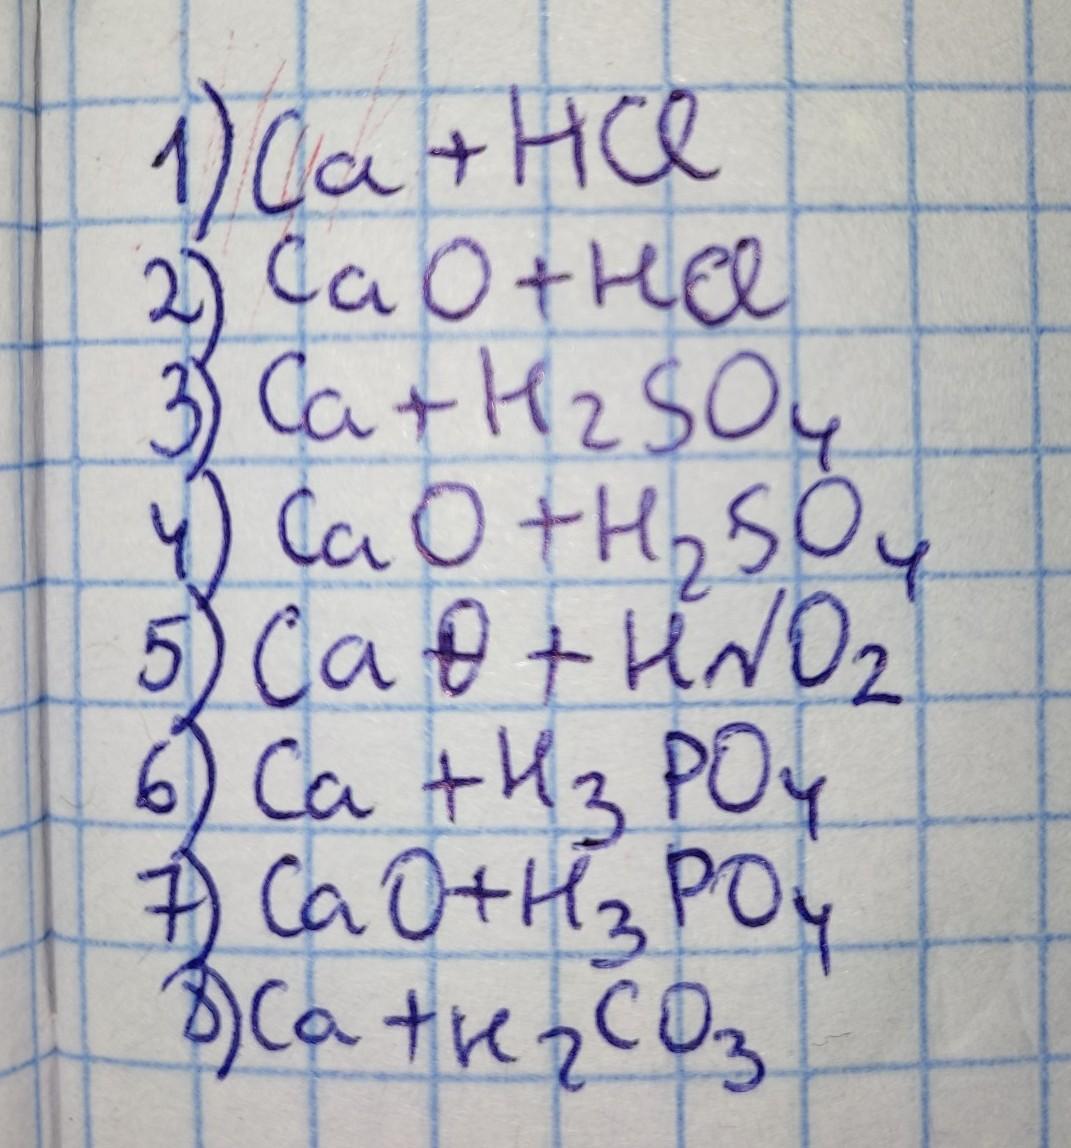 1) Ca + HCl
2) CaO + HCl
3) Ca + H2SO4
4) CaO + H2SO4
5) CaO + HNO2
6) Ca + H3PO4
7) CaO + H3PO4
8) Ca + H2CO3